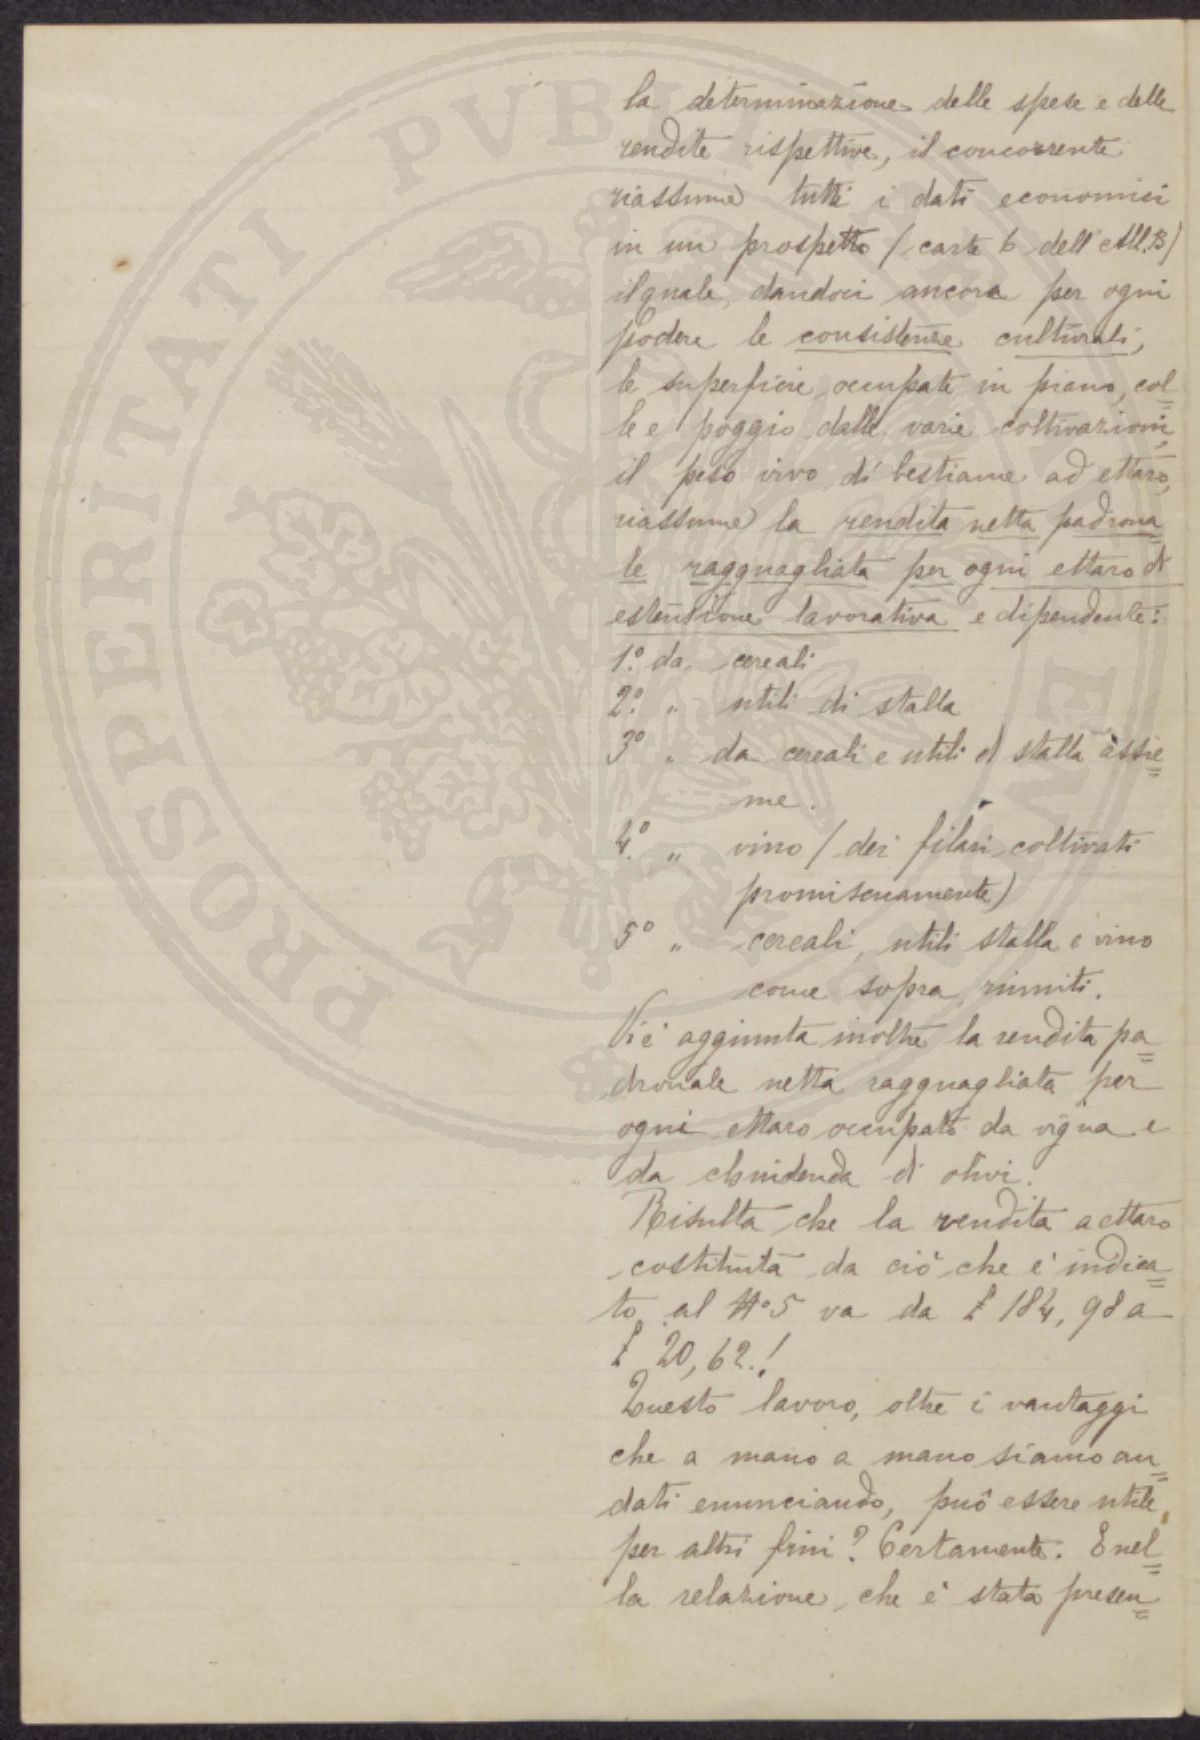 la determinazione delle spese e delle
rendite rispettive, il concorrente
riassume tutti i dati economici
in un prospetto (carte 6 dell'All. B)
il quale, dandoci ancora per ogni
podere le consistenze culturali,
le superficie occupate in piano, col=
le e poggio dalle varie coltivazioni,
il peso vivo di bestiame ad ettaro,
riassume la rendita netta padrona=
le ragguagliata per ogni ettaro di
estensione lavorativa e dipendente:
1.º da cereali
2.º " utili di stalla
3º " da cereali e utili di stalla assie=
me.
4.º " vino (dei filari coltivati
promiscuamente)
5º " cereali, utili stalla e vino
come sopra riuniti.
Vi è aggiunta inoltre la rendita pa=
dronale netta ragguagliata per
ogni ettaro occupato da vigna e
da chiudenda di olivi.
Risulta che la rendita a ettaro
costituita da ciò che è indica=
to al Nº 5 va da £ 184,98 a
£ 20,62.!
Questo lavoro, oltre i vantaggi
che a mano a mano siamo an=
dati enunciando, può essere utile
per altri fini? Certamente. E nel=
la relazione, che è stata presen=
PROSPERITATI PUBLICAE